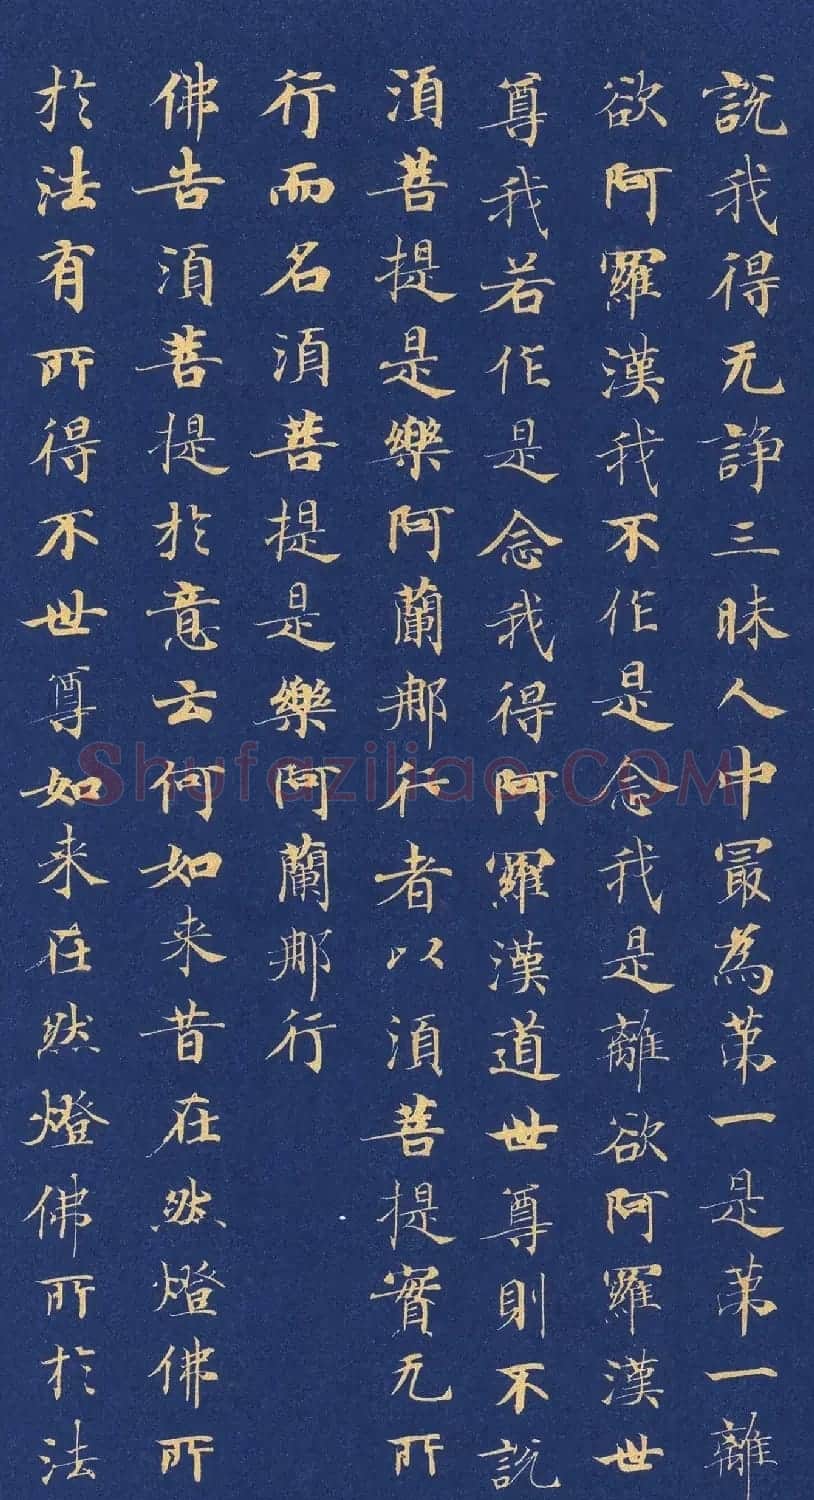 說我得无諍三昧人中最為第一是第一離
欲阿羅漢我不作是念我是離欲阿羅漢世
尊我若作是念我得阿羅漢道世尊則不說
須菩提是樂阿蘭那行者以須菩提實无所
行而名須菩提是樂阿蘭那行
佛告須菩提於意云何如来昔在然燈佛所
於法有所得不世尊如来在然燈佛所於法
Shufaziliao.COM